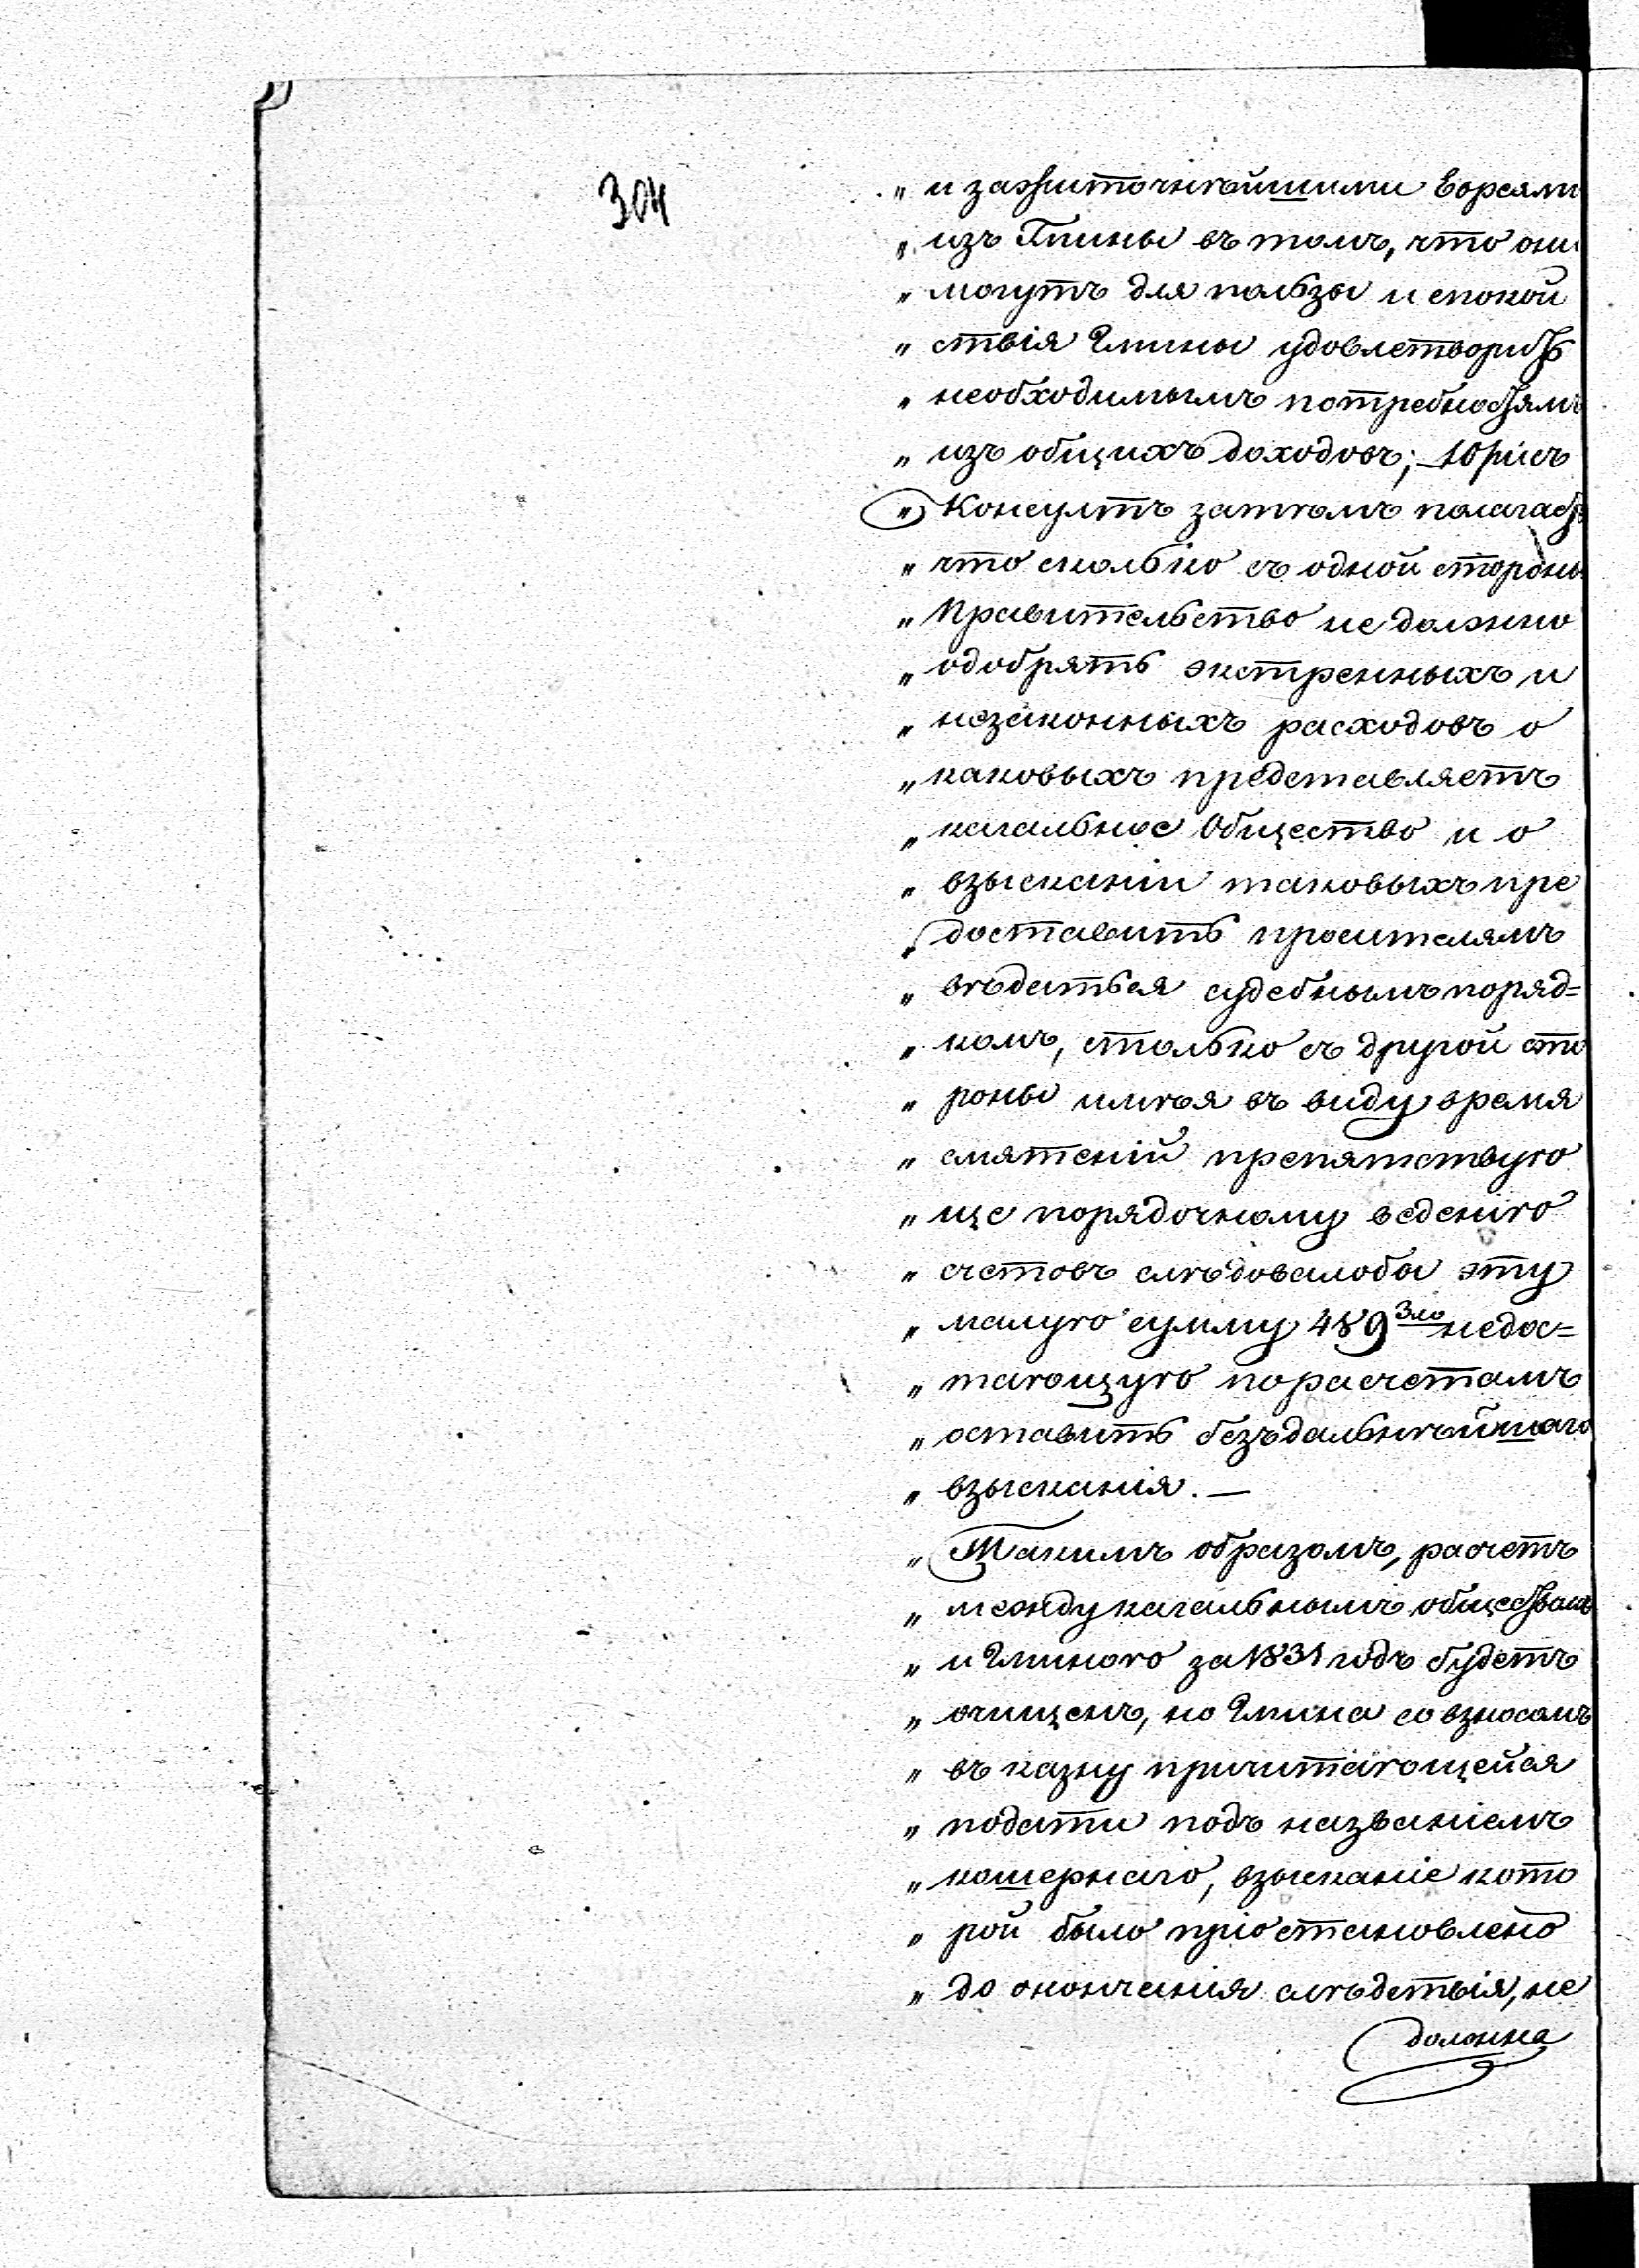 304
„ и зажиточнѣйшими Евреями
„ изъ Гмины въ томъ, что они
„ могутъ для пользы и спокой
„ ствія Гмины удовлетворить
„ необходимымъ потребностямъ
„ изъ общихъ доходовъ; Юрисъ
„ Консултъ затѣмъ полагаетъ
„ что сколько съ одной стороны
„ Правительство не должно
„ одобрять экстренныхъ и
„ незаконныхъ расходовъ о
„ каковыхъ представляетъ
„ кагальное Общество и о
„ взысканіи таковыхъ пре
„ доставить просителямъ
„ вѣдаться судебнымъ поряд=
„ комъ, столько съ другой сто
„ роны имѣя въ виду время
„ смятеній препятствую
„ ще порядочному веденію
„ счетовъ слѣдовалобы эту
„ малую сумму 489 Зло недос=
„ тающую по расчетамъ
„ оставить безъ дальнѣйшаго
„ взысканія. —
„ Такимъ образомъ, расчетъ
„ между кагальнымъ обществомъ
„ и Гминою за 1831 годъ будетъ
„ очищенъ, но Гмина со взносомъ
„ въ казну причитающейся
„ подати подъ названіемъ
„ кошернаго, взысканіе кото
„ рой было пріостановлено
„ до окончанія слѣдствія, не
должна